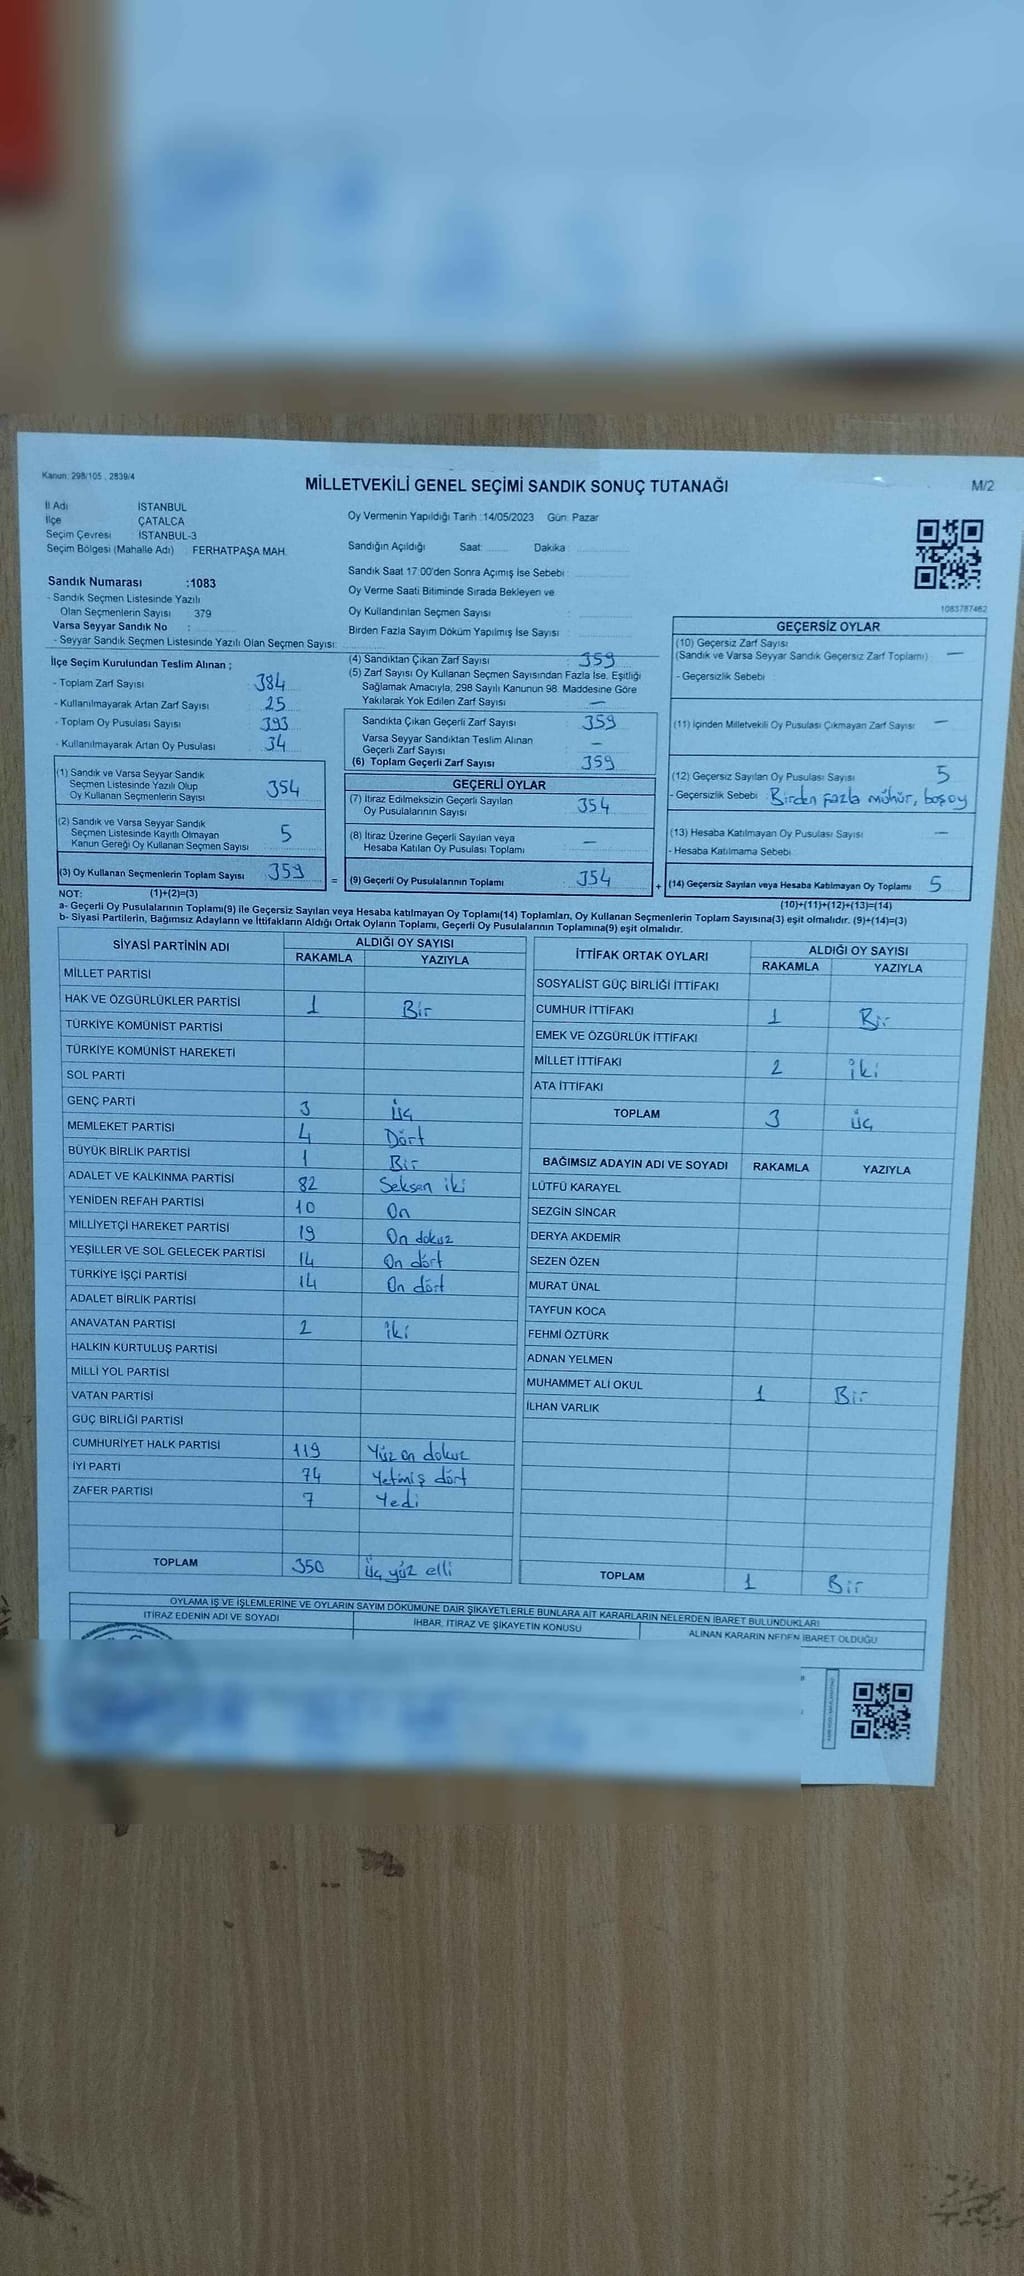 Kanun: 298/105 , 2839/4
MİLLETVEKİLİ GENEL SEÇİMİ SANDIK SONUÇ TUTANAĞI
M/2
İl Adı İSTANBUL
İlçe ÇATALCA
Seçim Çevresi İSTANBUL-3
Seçim Bölgesi (Mahalle Adı) FERHATPAŞA MAH.
Oy Vermenin Yapıldığı Tarih :14/05/2023 Gün: Pazar
Sandığın Açıldığı Saat: Dakika :
Sandık Saat 17:00'den Sonra Açımış İse Sebebi :
Oy Verme Saati Bitiminde Sırada Bekleyen ve
Oy Kullandırılan Seçmen Sayısı :
Birden Fazla Sayım Döküm Yapılmış İse Sayısı :
1083787462
Sandık Numarası :1083
- Sandık Seçmen Listesinde Yazılı
Olan Seçmenlerin Sayısı : 379
Varsa Seyyar Sandık No :
- Seyyar Sandık Seçmen Listesinde Yazılı Olan Seçmen Sayısı:
İlçe Seçim Kurulundan Teslim Alınan ;
- Toplam Zarf Sayısı 384
- Kullanılmayarak Artan Zarf Sayısı 25
- Toplam Oy Pusulası Sayısı 393
- Kullanılmayarak Artan Oy Pusulası 34
(1) Sandık ve Varsa Seyyar Sandık
Seçmen Listesinde Yazılı Olup
Oy Kullanan Seçmenlerin Sayısı 354
(2) Sandık ve Varsa Seyyar Sandık
Seçmen Listesinde Kayıtlı Olmayan
Kanun Gereği Oy Kullanan Seçmen Sayısı 5
(3) Oy Kullanan Seçmenlerin Toplam Sayısı 359
(4) Sandıktan Çıkan Zarf Sayısı : 359
(5) Zarf Sayısı Oy Kullanan Seçmen Sayısından Fazla İse, Eşitliği
Sağlamak Amacıyla, 298 Sayılı Kanunun 98. Maddesine Göre
Yakılarak Yok Edilen Zarf Sayısı —
Sandıkta Çıkan Geçerli Zarf Sayısı : 359
Varsa Seyyar Sandıktan Teslim Alınan
Geçerli Zarf Sayısı —
(6) Toplam Geçerli Zarf Sayısı : 359
GEÇERLİ OYLAR
(7) İtiraz Edilmeksizin Geçerli Sayılan
Oy Pusulalarının Sayısı : 354
(8) İtiraz Üzerine Geçerli Sayılan veya
Hesaba Katılan Oy Pusulası Toplamı : —
= (9) Geçerli Oy Pusulalarının Toplamı : 354
GEÇERSİZ OYLAR
(10) Geçersiz Zarf Sayısı
(Sandık ve Varsa Seyyar Sandık Geçersiz Zarf Toplamı) : —
- Geçersizlik Sebebi :
(11) İçinden Milletvekili Oy Pusulası Çıkmayan Zarf Sayısı : —
(12) Geçersiz Sayılan Oy Pusulası Sayısı : 5
- Geçersizlik Sebebi : Birden fazla mühür, boş oy
(13) Hesaba Katılmayan Oy Pusulası Sayısı : —
- Hesaba Katılmama Sebebi :
+ (14) Geçersiz Sayılan veya Hesaba Katılmayan Oy Toplamı : 5
NOT: (1)+(2)=(3)
(10)+(11)+(12)+(13)=(14)
a- Geçerli Oy Pusulalarının Toplamı(9) ile Geçersiz Sayılan veya Hesaba katılmayan Oy Toplamı(14) Toplamları, Oy Kullanan Seçmenlerin Toplam Sayısına(3) eşit olmalıdır. (9)+(14)=(3)
b- Siyasi Partilerin, Bağımsız Adayların ve İttifakların Aldığı Ortak Oyların Toplamı, Geçerli Oy Pusulalarının Toplamına(9) eşit olmalıdır.
SİYASİ PARTİNİN ADI ALDIĞI OY SAYISI
RAKAMLA YAZIYLA
MİLLET PARTİSİ
HAK VE ÖZGÜRLÜKLER PARTİSİ 1 Bir
TÜRKİYE KOMÜNİST PARTİSİ
TÜRKİYE KOMÜNİST HAREKETİ
SOL PARTİ
GENÇ PARTİ 3 Üç
MEMLEKET PARTİSİ 4 Dört
BÜYÜK BİRLİK PARTİSİ 1 Bir
ADALET VE KALKINMA PARTİSİ 82 Seksen iki
YENİDEN REFAH PARTİSİ 10 On
MİLLİYETÇİ HAREKET PARTİSİ 19 On dokuz
YEŞİLLER VE SOL GELECEK PARTİSİ 14 On dört
TÜRKİYE İŞÇİ PARTİSİ 14 On dört
ADALET BİRLİK PARTİSİ
ANAVATAN PARTİSİ 2 iki
HALKIN KURTULUŞ PARTİSİ
MİLLİ YOL PARTİSİ
VATAN PARTİSİ
GÜÇ BİRLİĞİ PARTİSİ
CUMHURİYET HALK PARTİSİ 119 Yüz on dokuz
İYİ PARTİ 74 Yetmiş dört
ZAFER PARTİSİ 7 Yedi
TOPLAM 350 Üç yüz elli
İTTİFAK ORTAK OYLARI ALDIĞI OY SAYISI
RAKAMLA YAZIYLA
SOSYALİST GÜÇ BİRLİĞİ İTTİFAKI
CUMHUR İTTİFAKI 1 Bir
EMEK VE ÖZGÜRLÜK İTTİFAKI
MİLLET İTTİFAKI 2 iki
ATA İTTİFAKI
TOPLAM 3 Üç
BAĞIMSIZ ADAYIN ADI VE SOYADI RAKAMLA YAZIYLA
LÜTFÜ KARAYEL
SEZGİN SİNCAR
DERYA AKDEMİR
SEZEN ÖZEN
MURAT ÜNAL
TAYFUN KOCA
FEHMİ ÖZTÜRK
ADNAN YELMEN
MUHAMMET ALİ OKUL 1 Bir
İLHAN VARLIK
TOPLAM 1 Bir
OYLAMA İŞ VE İŞLEMLERİNE VE OYLARIN SAYIM DÖKÜMÜNE DAİR ŞİKAYETLERLE BUNLARA AİT KARARLARIN NELERDEN İBARET BULUNDUKLARI
İTİRAZ EDENİN ADI VE SOYADI İHBAR, İTİRAZ VE ŞİKAYETİN KONUSU ALINAN KARARIN NEDEN İBARET OLDUĞU